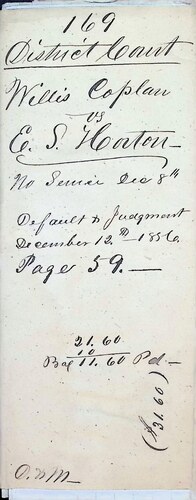 169
District Court
Willis Coplan
vs
E. S. Horton
No Service Dec 8th
Default & Judgment
December 12th 1856.
Page 59.
21.60
10
Bal 11.60 Pd
(31.60)